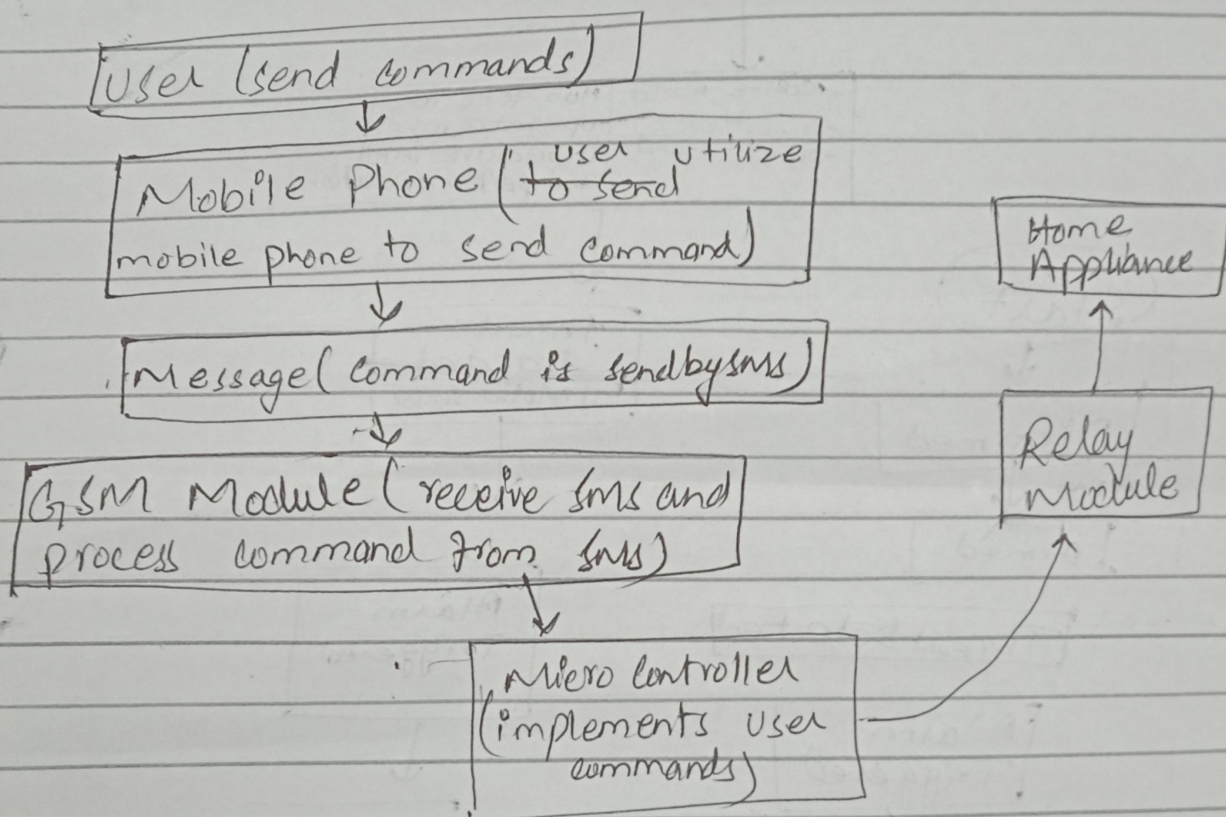 User (send commands)
Mobile Phone (user utilize
to send
mobile phone to send command)
Message (command is sendbysms)
GSM Module (receive sms and
process command from sms)
Micro controller
(implements user
commands)
Relay
Module
Home
Appliance